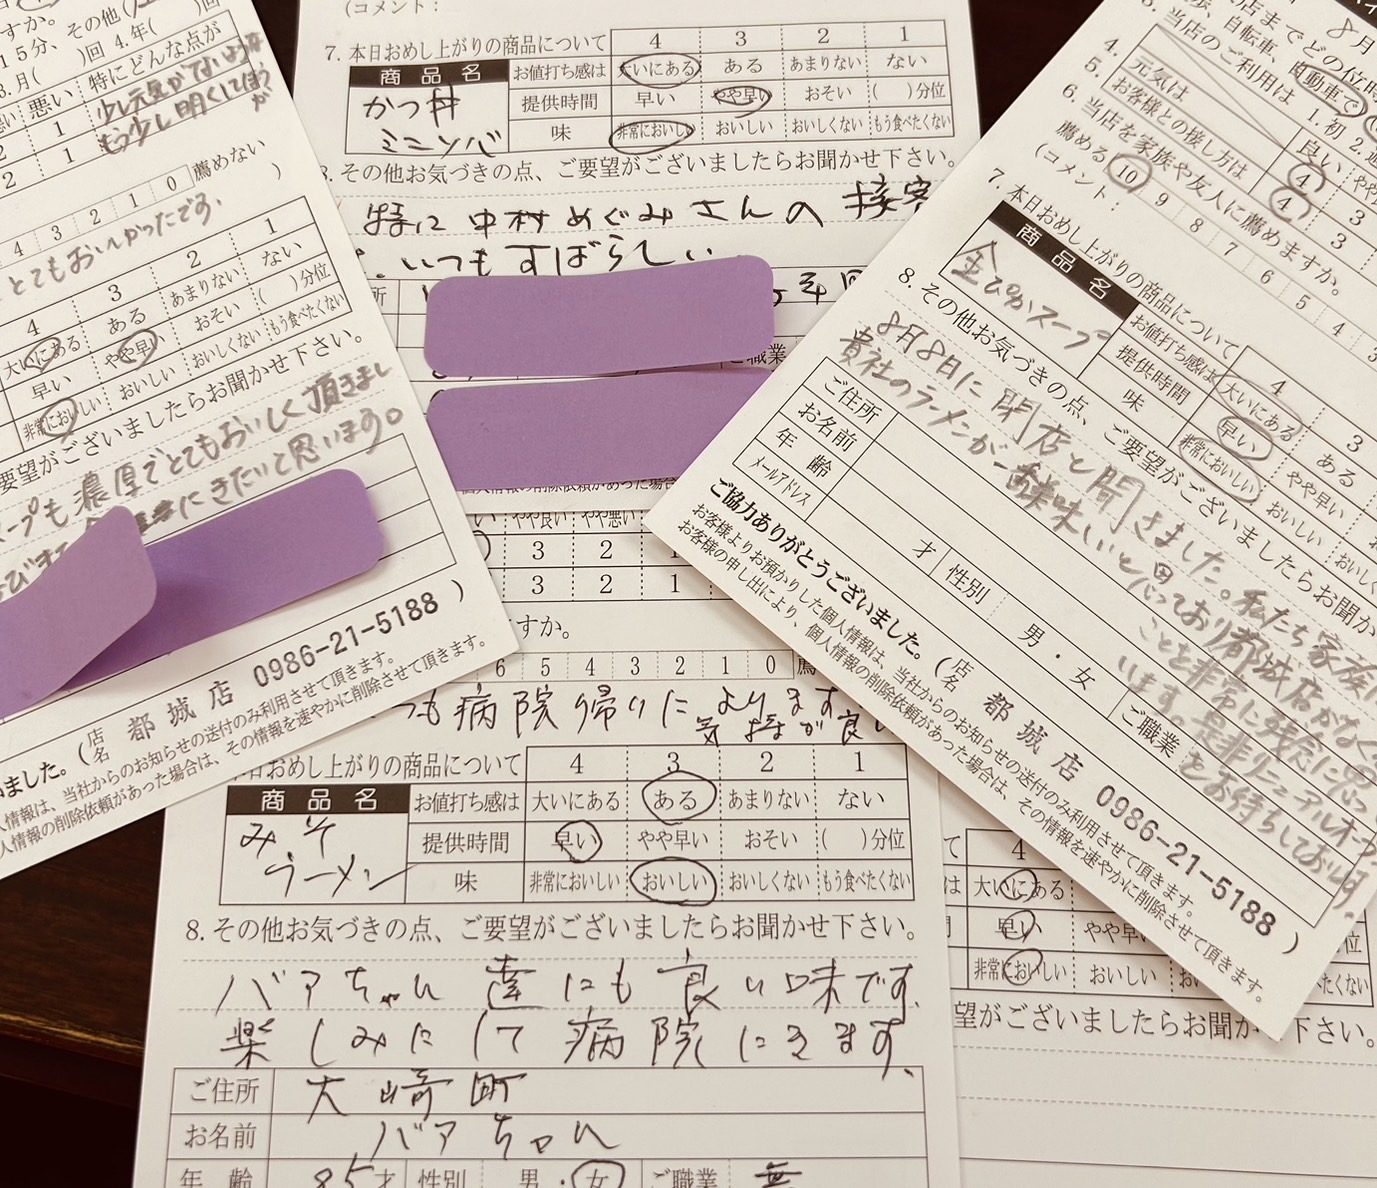 すか。
15分、その他(
)回 4.年( )回
3.月( 特にどんな点が
悪い
少し元気がないような
もう少し明るくしてほうが
1
2 1
2
4 3 2 1 0 薦めない
)
とてもおいしかったです。
4 3 2 1
大いにある ある あまりない ない
早い やや早い おそい ( )分位
非常においしい おいしい おいしくない もう食べたくない
要望がございましたらお聞かせ下さい。
ープも濃厚でとてもおいしく頂きまし
にきたいと思います。
ました。(店名 都城店 0986-21-5188 )
人情報は、当社からのお知らせの送付のみ利用させて頂きます。
人情報の削除依頼があった場合は、その情報を速やかに削除させて頂きます。
(コメント:
7. 本日おめし上がりの商品について 4 3 2 1
商品名 お値打ち感は 大いにある ある あまりない ない
かつ丼 提供時間 早い やや早い おそい ( )分位
ミニソバ 味 非常においしい おいしい おいしくない もう食べたくない
その他お気づきの点、ご要望がございましたらお聞かせ下さい。
特に中村めぐみさんの接客
いつもすばらしい
所
ご職業
個人情報の削除依頼があった場合
やや良い やや悪い
3 2 1
3 2 1
すか。
6 5 4 3 2 1 0 薦
つも病院帰りによります
気持が良
本日おめし上がりの商品について 4 3 2 1
商品名 お値打ち感は 大いにある ある あまりない ない
みそ 提供時間 早い やや早い おそい ( )分位
ラーメン 味 非常においしい おいしい おいしくない もう食べたくない
8. その他お気づきの点、ご要望がございましたらお聞かせ下さい。
バアちゃん達にも良い味です。
楽しみにして病院にきます。
ご住所 大崎町
お名前 バアちゃん
年齢 85才 性別 男・女 ご職業 無
8月
店までどの位
歩、自転車、自動車で
3. 当店のご利用は 1.初 2.週
4. 元気は 良い やや
5. お客様との接し方は 4 3
4 3
6. 当店を家族や友人に薦めますか。
薦める 10 9 8 7 6 5 4 3
(コメント:
7. 本日おめし上がりの商品について 4 3
商品名 お値打ち感は 大いにある ある
金ぴかスープ 提供時間 早い やや早い
味 非常においしい おいしい おいしく
8. その他お気づきの点、ご要望がございましたらお聞か
8月8日に閉店と聞きました。私たち家族は
貴社のラーメンが一番美味いと思っており都城店がなくなる
ことを非常に残念に思って
います。是非リニアルオープン
をお待ちしております。
ご住所
お名前
年齢 才 性別 男・女 ご職業
メールアドレス
ご協力ありがとうございました。(店名 都城店 0986-21-5188 )
お客様よりお預かりした個人情報は、当社からのお知らせの送付のみ利用させて頂きます。
お客様の申し出により、個人情報の削除依頼があった場合は、その情報を速やかに削除させて頂きます。
て 4
は 大いにある
間 早い やや早い 位
非常においしい おいしい たくない
望がございましたらお聞か 下さい。